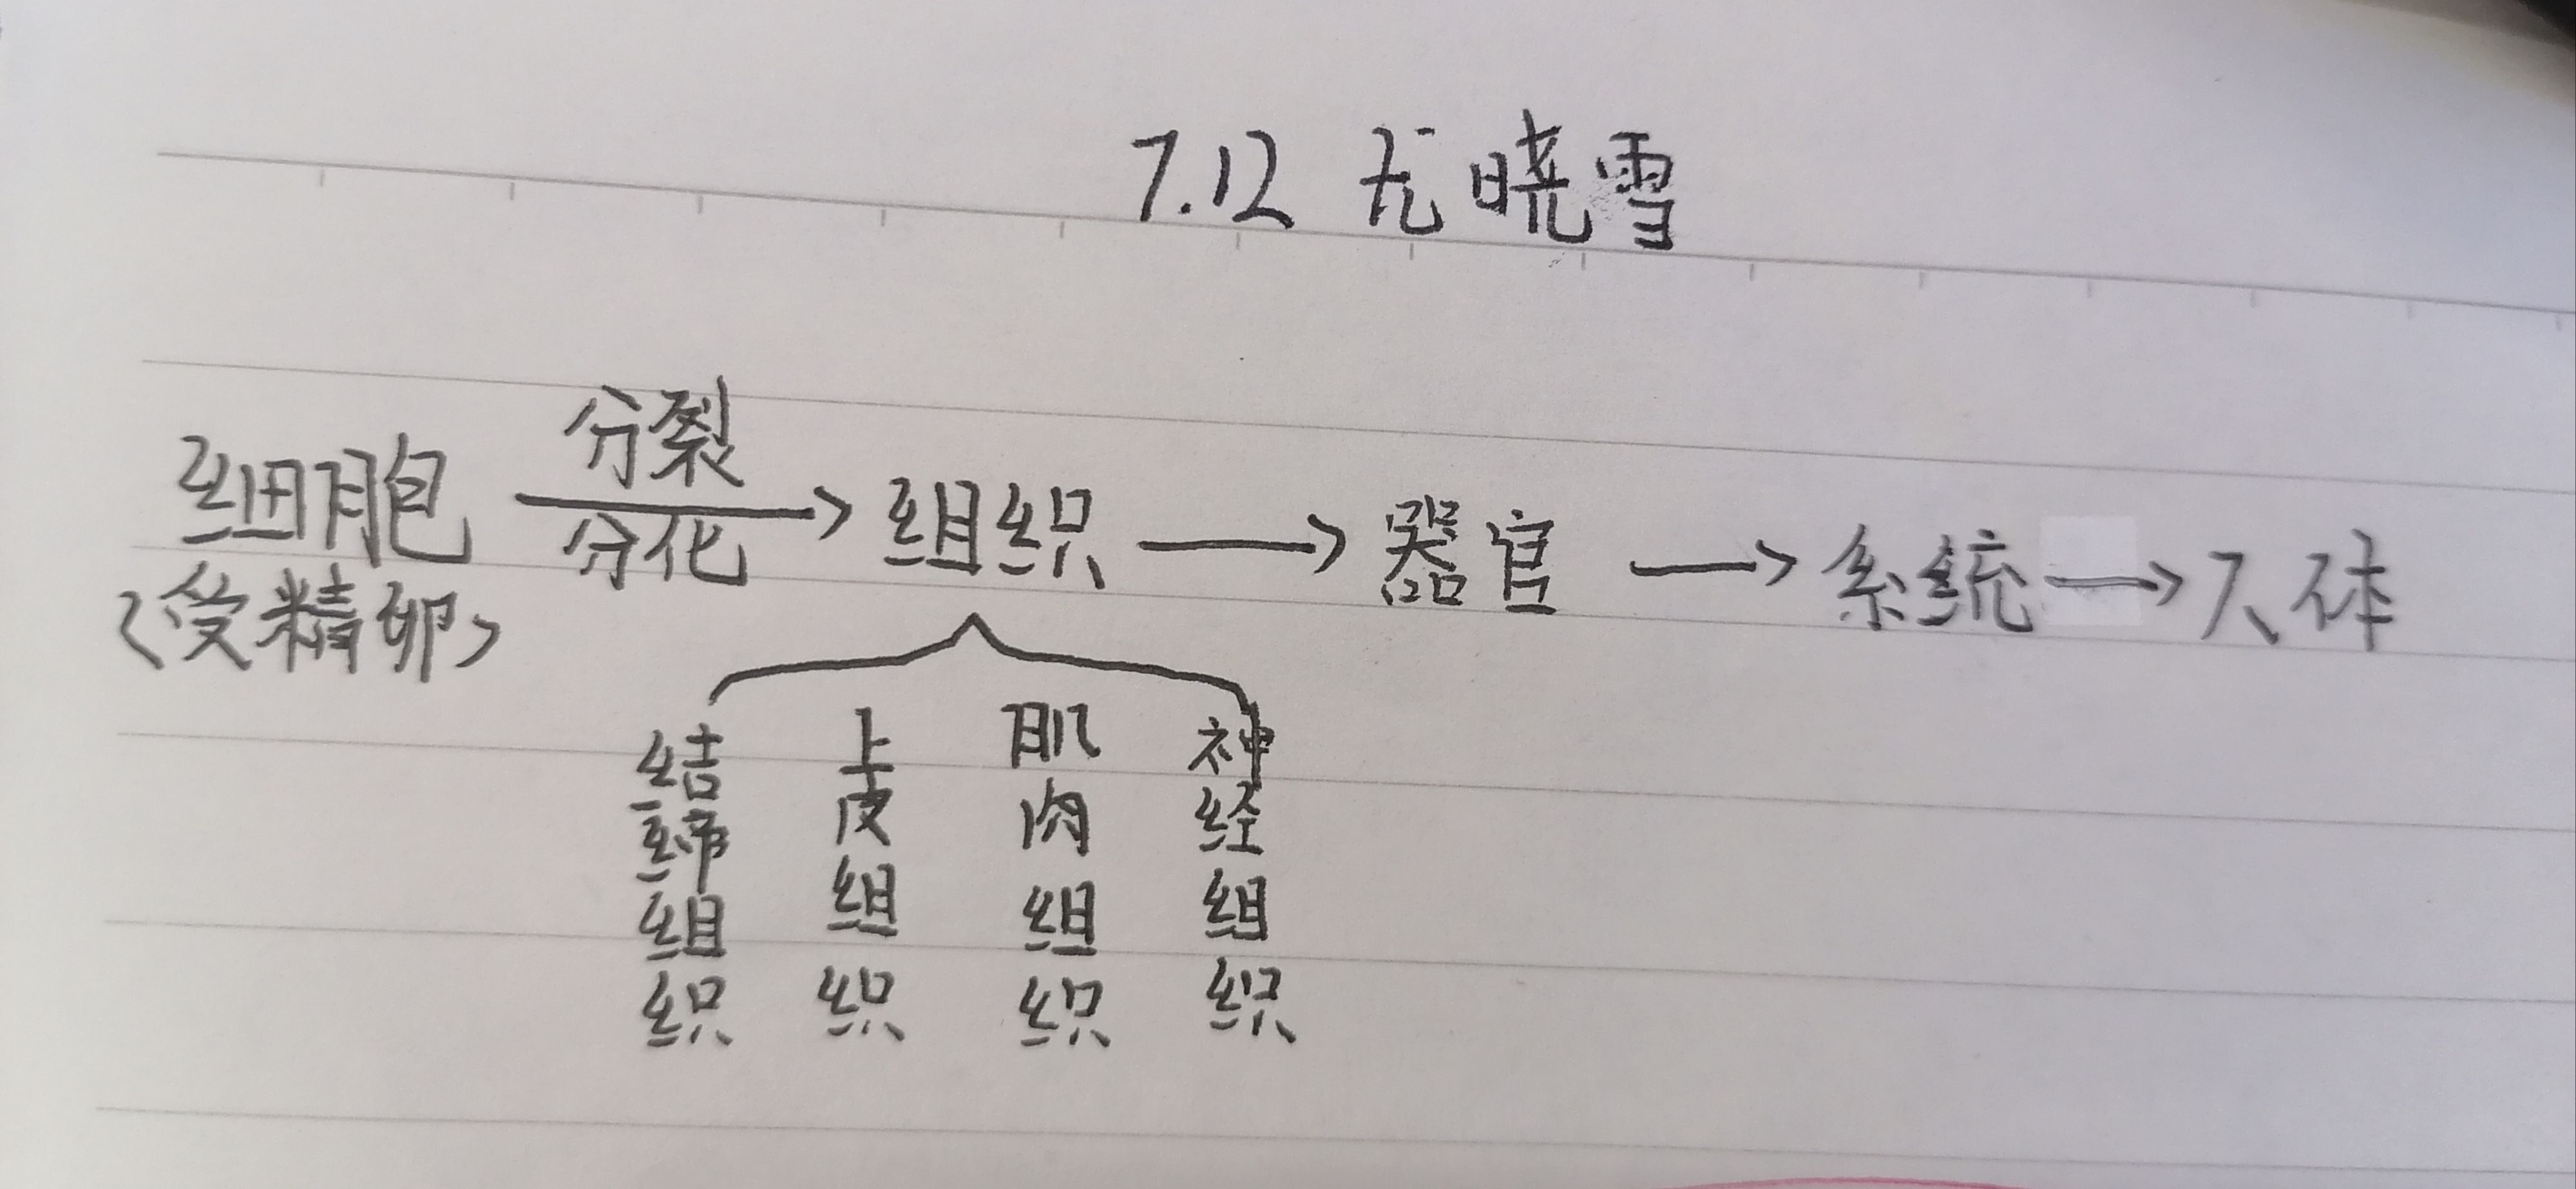 7.12 尤晓雪
细胞 分裂 分化 → 组织 → 器官 → 系统 → 人体
(受精卵)
结缔组织
上皮组织
肌肉组织
神经组织